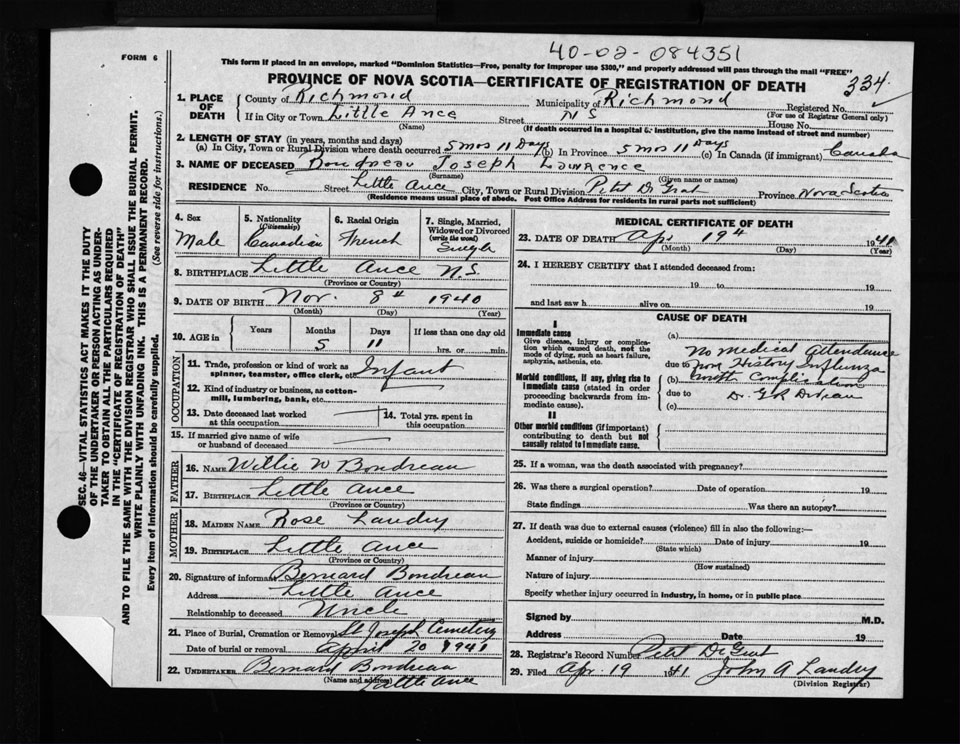 40-02-084351
FORM 6
This form if placed in an envelope, marked "Dominion Statistics—Free, penalty for improper use $300," and properly addressed will pass through the mail "FREE"
PROVINCE OF NOVA SCOTIA—CERTIFICATE OF REGISTRATION OF DEATH
334
1. PLACE OF DEATH County of Richmond Municipality of Richmond Registered No.
(For use of Registrar General only)
If in City or Town Little Ance Street N S House No.
(Name) (If death occurred in a hospital or institution, give the name instead of street and number)
2. LENGTH OF STAY (in years, months and days)
(a) In City, Town or Rural Division where death occurred 5 mos 11 Days (b) In Province 5 mos 11 Days (c) In Canada (if immigrant) Canada
3. NAME OF DECEASED Boudreau Joseph Lawrence
(Surname) (Given name or names)
RESIDENCE No. Street Little Ance City, Town or Rural Division Petit De Grat Province Nova Scotia
(Residence means usual place of abode. Post Office Address for residents in rural parts not sufficient)
4. Sex Male
5. Nationality (Citizenship) Canadian
6. Racial Origin French
7. Single, Married, Widowed or Divorced (write the word) Single
8. BIRTHPLACE Little Ance N.S.
(Province or Country)
9. DATE OF BIRTH Nov. 8th 1940
(Month) (Day) (Year)
10. AGE in Years Months Days If less than one day old
5 11 hrs. or min.
OCCUPATION
11. Trade, profession or kind of work as spinner, teamster, office clerk, etc. Infant
12. Kind of industry or business, as cotton-mill, lumbering, bank, etc.
13. Date deceased last worked at this occupation
14. Total yrs. spent in this occupation
15. If married give name of wife or husband of deceased
FATHER
16. NAME Willie W Boudreau
17. BIRTHPLACE Little Ance
(Province or Country)
MOTHER
18. MAIDEN NAME Rose Landry
19. BIRTHPLACE Little Ance
(Province or Country)
20. Signature of informant Bernard Boudreau
Address Little Ance
Relationship to deceased Uncle
21. Place of Burial, Cremation or Removal St Joseph Cemetery
Date of burial or removal April 20 1941
22. UNDERTAKER Bernard Boudreau
(Name and address) Little Ance
MEDICAL CERTIFICATE OF DEATH
23. DATE OF DEATH Apr 19th 1941
(Month) (Day) (Year)
24. I HEREBY CERTIFY that I attended deceased from:
19 to 19
and last saw h alive on 19
CAUSE OF DEATH
I
Immediate cause
Give disease, injury or complication which caused death, not the mode of dying, such as heart failure, asphyxia, asthenia, etc.
Morbid conditions, if any, giving rise to immediate cause (stated in order proceeding backwards from immediate cause).
II
Other morbid conditions (if important) contributing to death but not causally related to immediate cause.
(a)
No Medical Attendance
due to History Influenza
(b)
due to Dr.
(c)
25. If a woman, was the death associated with pregnancy?
26. Was there a surgical operation? Date of operation 19
State findings Was there an autopsy?
27. If death was due to external causes (violence) fill in also the following:—
Accident, suicide or homicide? Date of injury 19
(State which)
Manner of injury
(How sustained)
Nature of injury
Specify whether injury occurred in industry, in home, or in public place
Signed by M.D.
Address Date 19
28. Registrar's Record Number Petit De Grat
29. Filed Apr. 19 1941 John A Landry
(Division Registrar)
SEC. 46—VITAL STATISTICS ACT MAKES IT THE DUTY
OF THE UNDERTAKER OR PERSON ACTING AS UNDER-
TAKER TO OBTAIN ALL THE PARTICULARS REQUIRED
IN THE "CERTIFICATE OF REGISTRATION OF DEATH"
AND TO FILE THE SAME WITH THE DIVISION REGISTRAR WHO SHALL ISSUE THE BURIAL PERMIT.
WRITE PLAINLY WITH UNFADING INK. THIS IS A PERMANENT RECORD.
Every item of information should be carefully supplied. (See reverse side for instructions.)